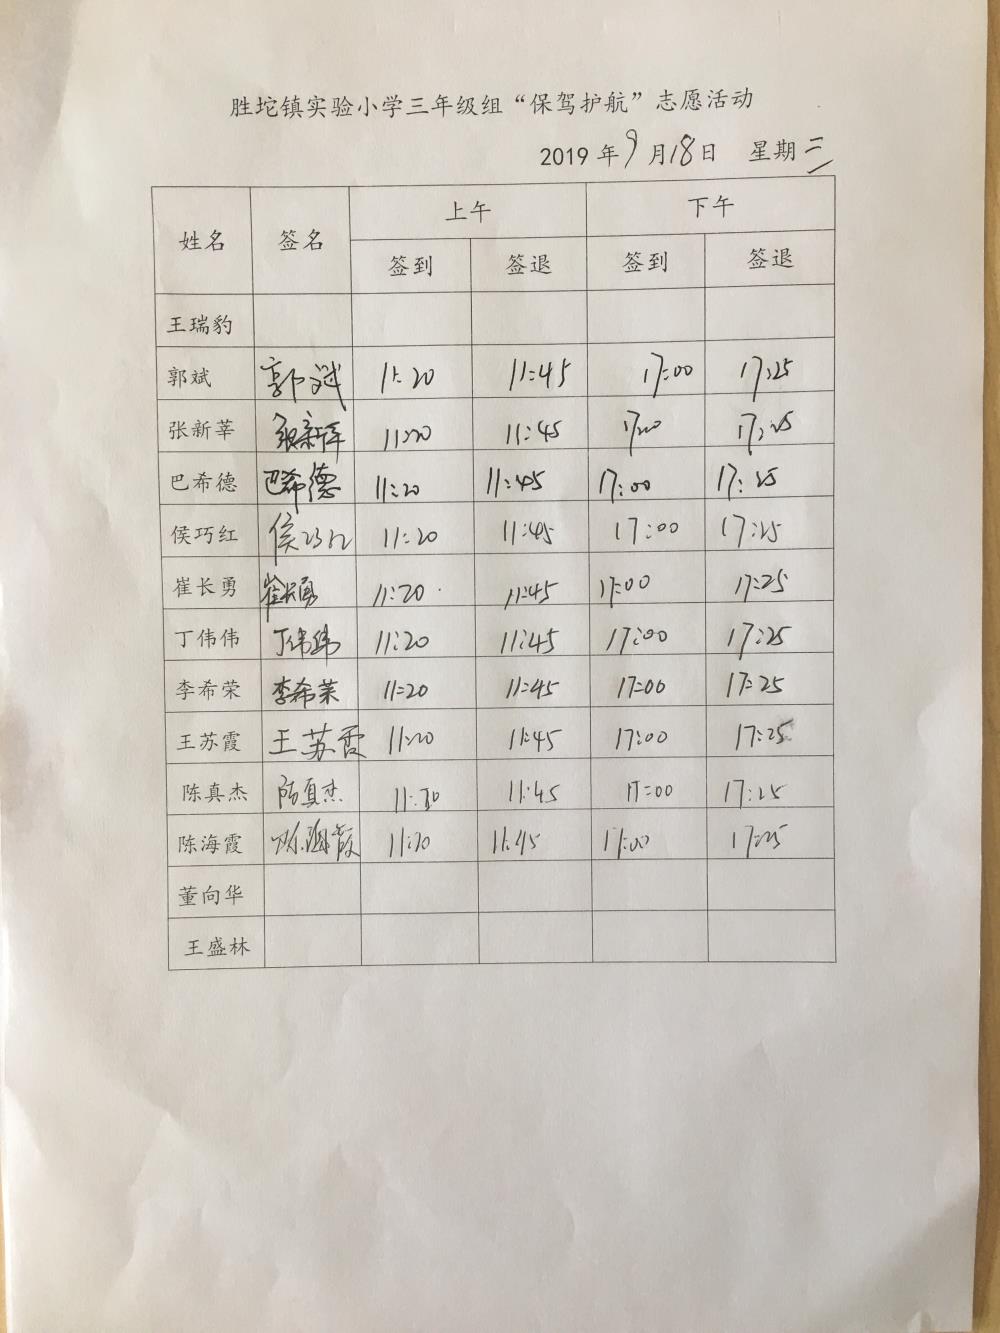 胜坨镇实验小学三年级组“保驾护航”志愿活动
2019年9月18日 星期三
姓名 签名 上午 下午
签到 签退 签到 签退
王瑞豹
郭斌 郭斌 11:20 11:45 17:00 17:25
张新莘 张新莘 11:20 11:45 17:00 17:25
巴希德 巴希德 11:20 11:45 17:00 17:25
侯巧红 侯巧红 11:20 11:45 17:00 17:25
崔长勇 崔长勇 11:20 11:45 17:00 17:25
丁伟伟 丁伟伟 11:20 11:45 17:00 17:25
李希荣 李希荣 11:20 11:45 17:00 17:25
王苏霞 王苏霞 11:20 11:45 17:00 17:25
陈真杰 陈真杰 11:20 11:45 17:00 17:25
陈海霞 陈海霞 11:20 11:45 17:00 17:25
董向华
王盛林